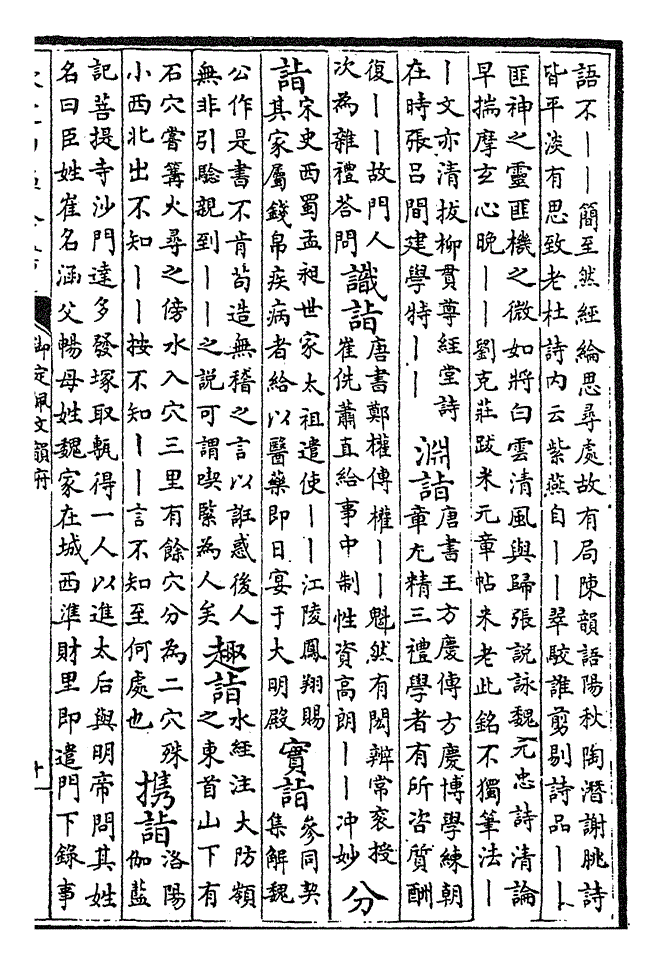 語不――簡至然經綸思尋處故有局陳韻語陽秋陶潛謝朓詩
皆平淡有思致老杜詩内云紫燕自――翠駮誰剪剔詩品――
匪神之靈匪機之微如將白雲清風與歸張說詠魏元忠詩清論
早揣摩玄心晚――劉克莊跋米元章帖米老此銘不獨筆法―
―文亦清拔柳貫尊經堂詩
在時張呂間建學特――
淵詣
唐書王方慶傳方慶博學練朝
章尤精三禮學者有所咨質酬
復――故門人
次為雜禮答問
識詣
唐書鄭權傳權――魁然有閎辨常衮授
崔侁蕭直給事中制性資高朗――冲妙
分
詣
宋史西蜀孟昶世家太祖遣使――江陵鳳翔賜
其家屬錢帛疾病者給以醫藥即日宴于大明殿
實詣
參同契
集解魏
公作是書不肯苟造無稽之言以誑惑後人
無非引驗親到――之說可謂喫緊為人矣
趣詣
水經注大防嶺
之東首山下有
石穴嘗篝火尋之傍水入穴三里有餘穴分為二穴殊
小西北出不知――按不知――言不知至何處也
携詣
洛陽
伽藍
記菩提寺沙門達多發塚取甎得一人以進太后與明帝問其姓
名曰臣姓崔名涵父暢母姓魏家在城西準財里即遣門下錄事
御定佩文韻府